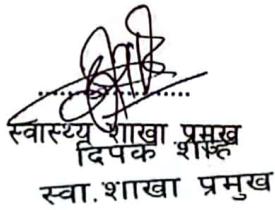 स्वास्थ्य शाखा प्रमुख
दिपक शाह
स्वा.शाखा प्रमुख